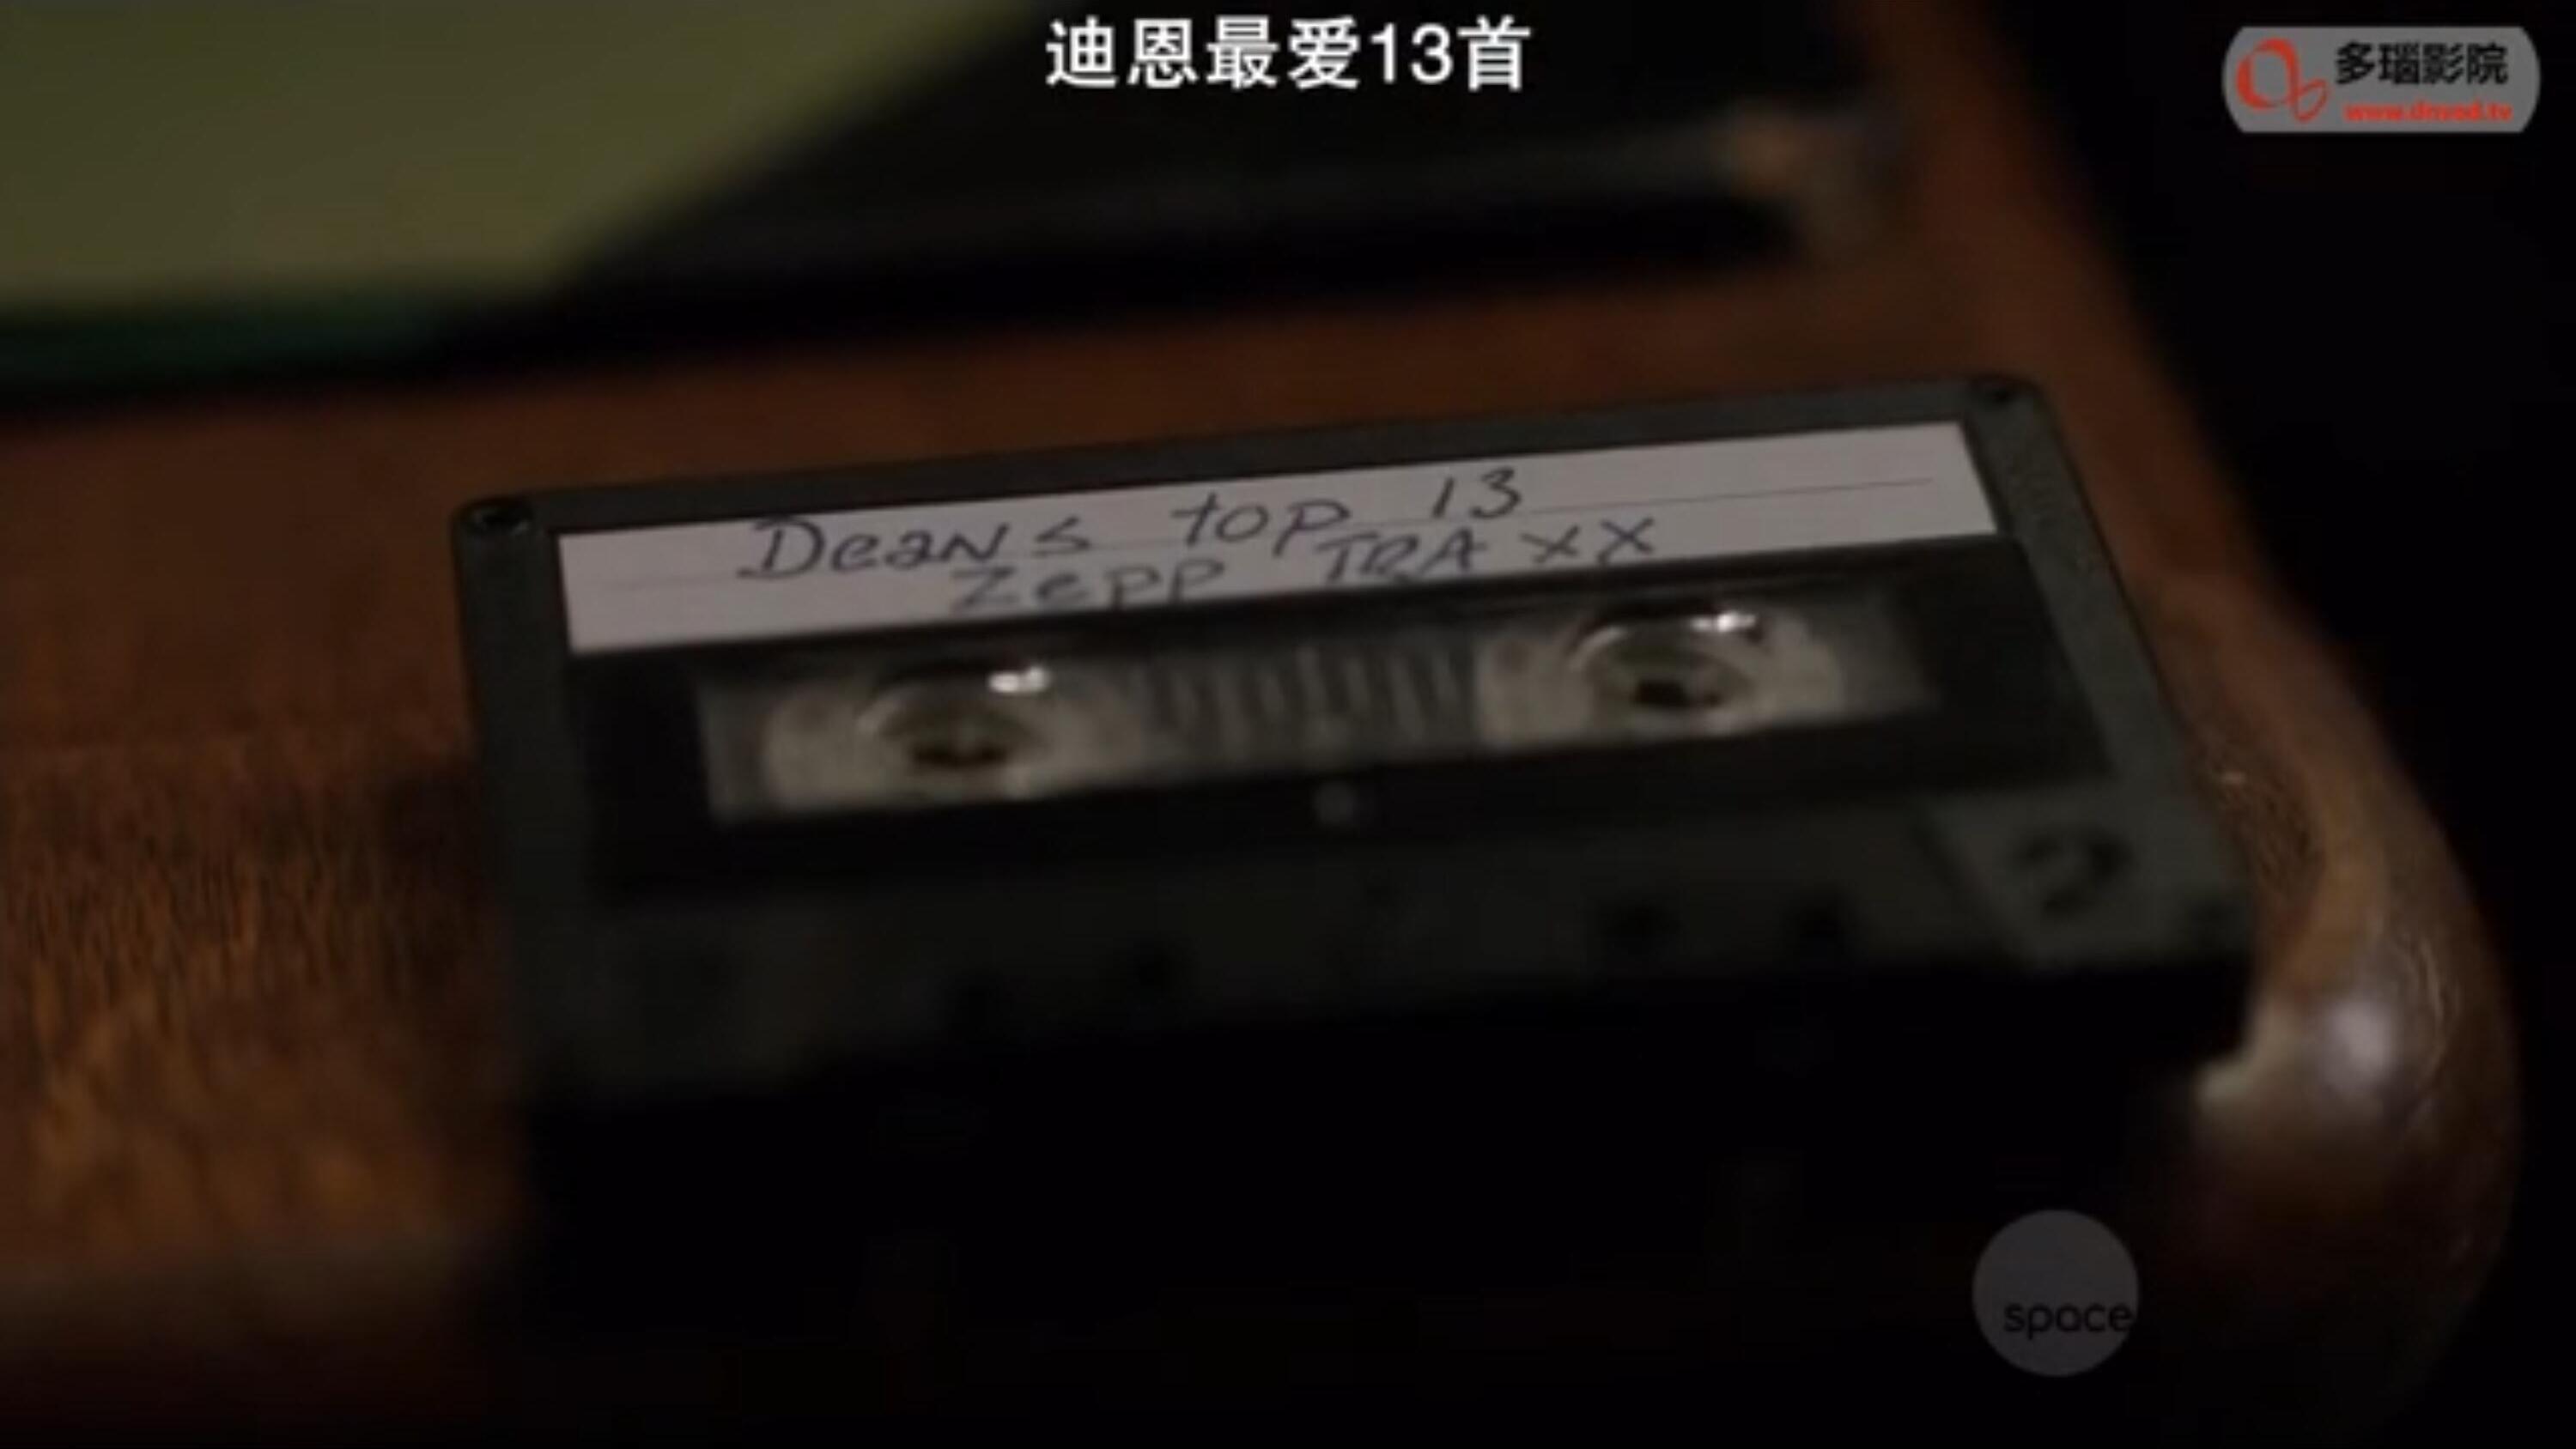 迪恩最爱13首
多瑙影院
www.dnvod.tv
Deans top 13
Zepp TRAXX
space